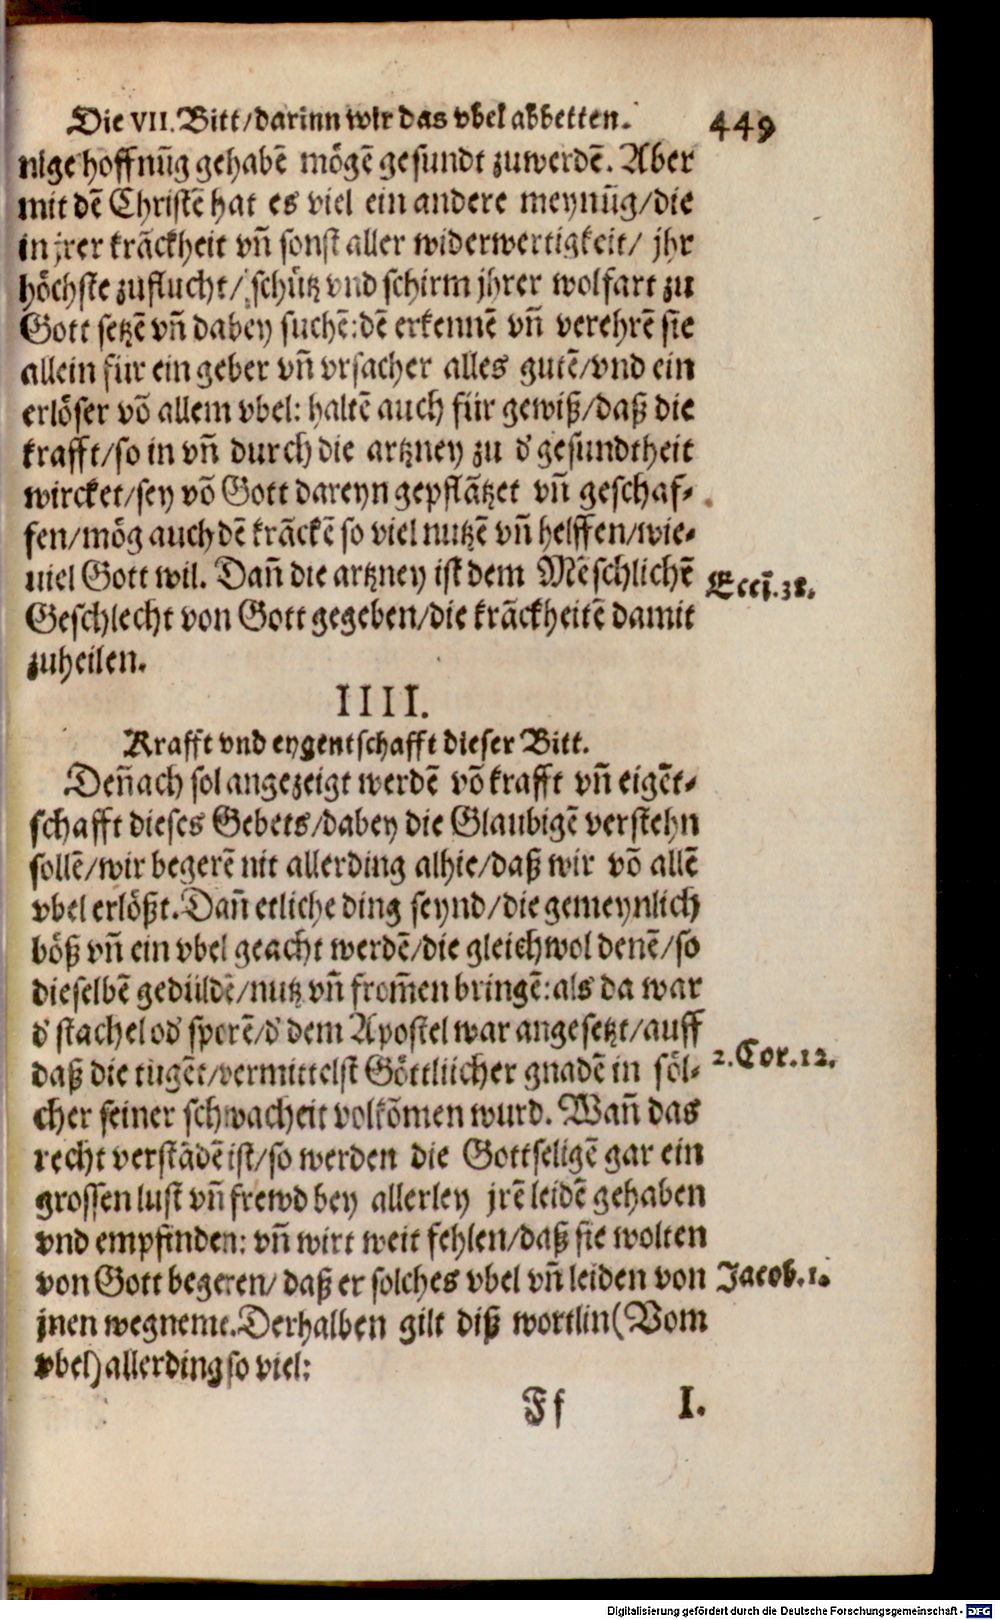 Die VII. Bitt/darinn wir das vbel abbetten. 449
nige hoffnūg gehabē mögē gesundt zuwerdē. Aber
mit dē Christē hat es viel ein andere meynūg/die
in jrer krāckheit vn̄ sonst aller widerwertigkeit/ jhr
höchste zuflucht/ schütz vnd schirm jhrer wolfart zu
Gott setzē vn̄ dabey suchē: dē erkennē vn̄ verehrē sie
allein für ein geber vn̄ vrsacher alles gutē/vnd ein
erlöser vō allem vbel: haltē auch für gewiß/daß die
krafft/so in vn̄ durch die artzney zu d' gesundtheit
wircket/sey vō Gott dareyn gepflātzet vn̄ geschaf-
fen/mög auch dē krāckē so viel nutzē vn̄ helffen/wie-
uiel Gott wil. Dan̄ die artzney ist dem Mēschlichē
Eccl. 38.
Geschlecht von Gott gegeben/die krāckheitē damit
zuheilen.
IIII.
Krafft vnd eygentschafft dieser Bitt.
Den̄ach sol angezeigt werdē vō krafft vn̄ eigēt-
schafft dieses Gebets/dabey die Glaubigē verstehn
sollē/wir begerē nit allerding alhie/daß wir vō allē
vbel erlößt. Dan̄ etliche ding seynd/die gemeynlich
böß vn̄ ein vbel geacht werdē/die gleichwol denē/so
dieselbē gedüldē/nutz vn̄ from̄en bringē: als da war
d' stachel od' sporē/d' dem Apostel war angesetzt/auff
2. Cor. 12.
daß die tugēt/vermittelst Göttliicher gnadē in söl-
cher seiner schwacheit volkōmen wurd. Wan̄ das
recht verstādē ist/so werden die Gottseligē gar ein
grossen lust vn̄ frewd bey allerley jrē leidē gehaben
vnd empfinden: vn̄ wirt weit fehlen/daß sie wolten
von Gott begeren/ daß er solches vbel vn̄ leiden von
Jacob. 1.
jnen wegneme. Derhalben gilt diß wortlin (Vom
vbel) allerding so viel:
Ff I.
Digitalisierung gefördert durch die Deutsche Forschungsgemeinschaft - DFG